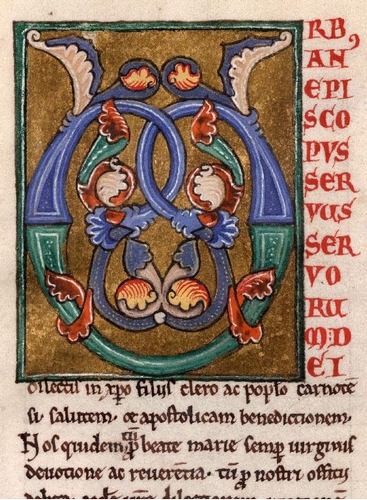 U RB,
AN
EPI
SCO
PVS
SER
VUS
SER
VO
RU
MD
EI
dilectis in xp̄o filiis clero ac popl̄o carnotē
si salutem. & apostolicam benedictionem.
Nos quidem tū p̱ beate marie semp̱ uirginis
deuotione ac reuerentia. tū p̱ nostri officij